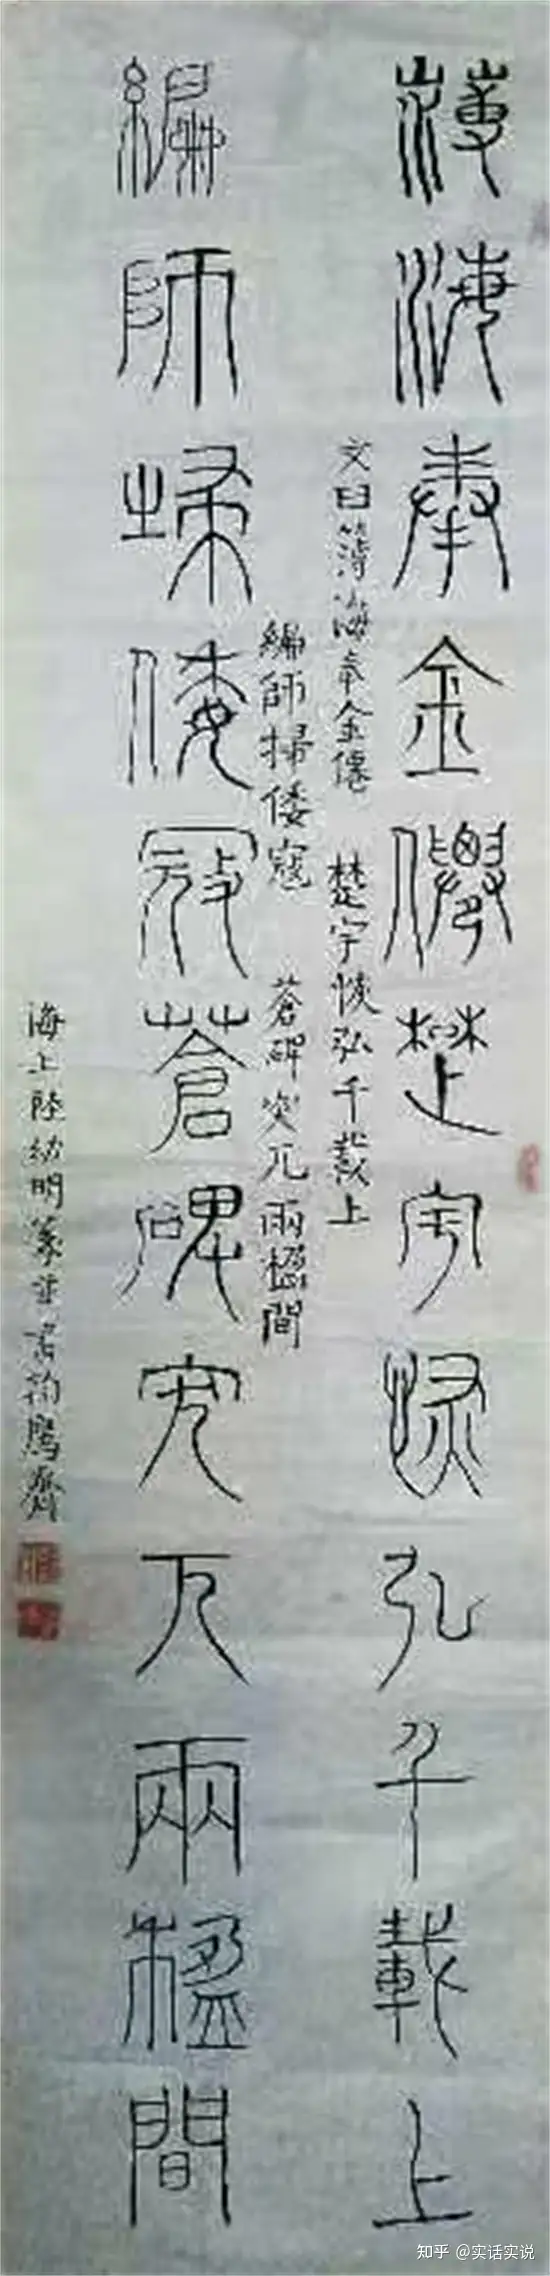 薄海奉金僊楚宇恢弘千載上
文曰薄海奉金僊 楚宇恢弘千載上
編師掃倭寇 蒼碑突兀兩楹間
編師埽倭寇蒼碑突兀兩楹間
海上陸幼明篆並書
知乎 @实话实说